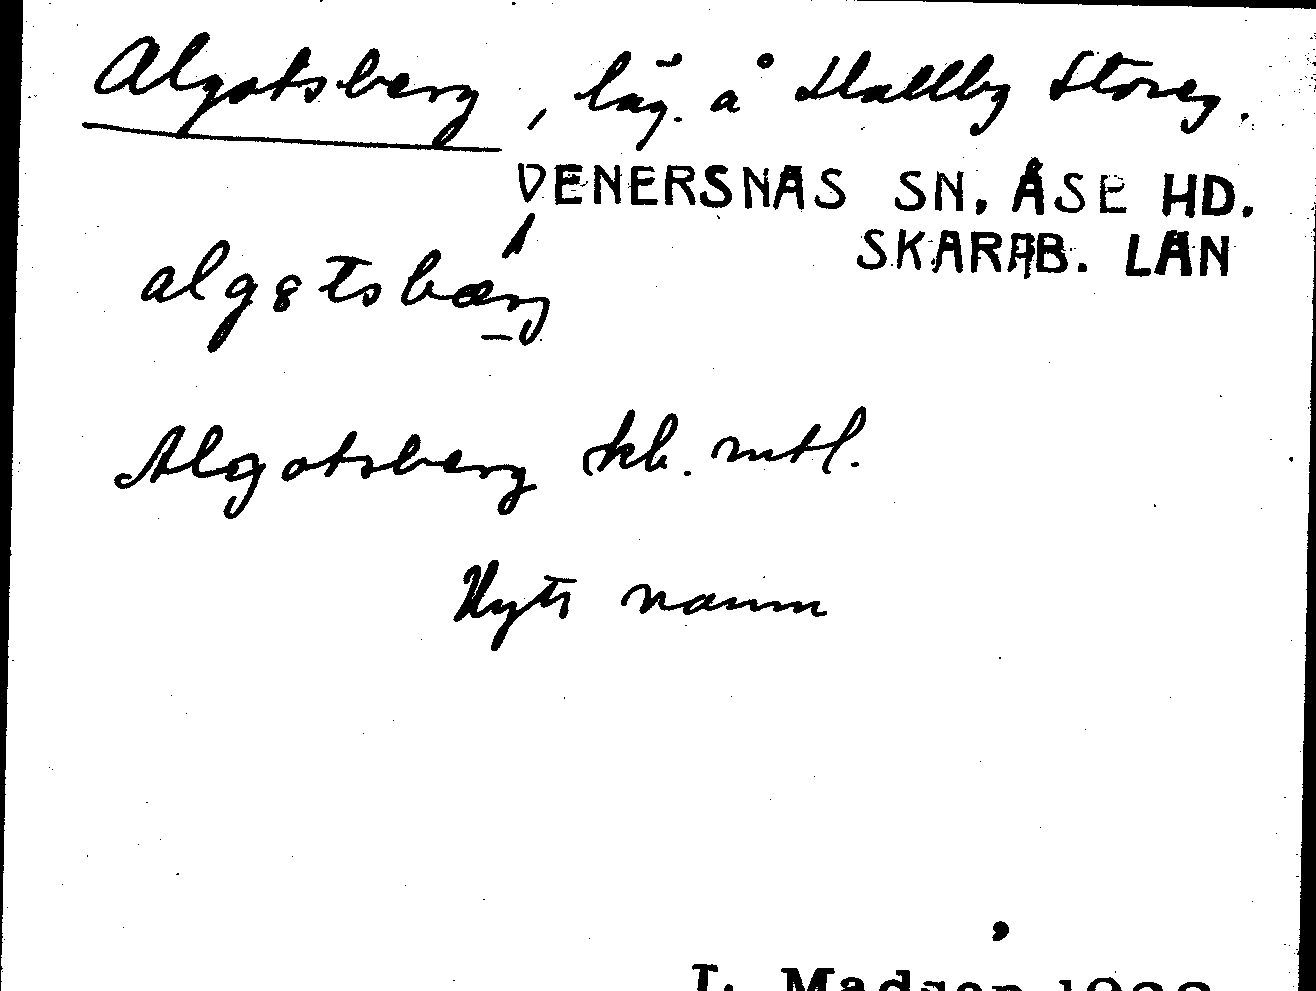 Algotsberg, läg. å Hallby Storeg.
VENERSNÄS SN. ÅSE HD.
SKARAB. LÄN
algɵtsbærj
Algotsberg kb. mtl.
Nytt namn